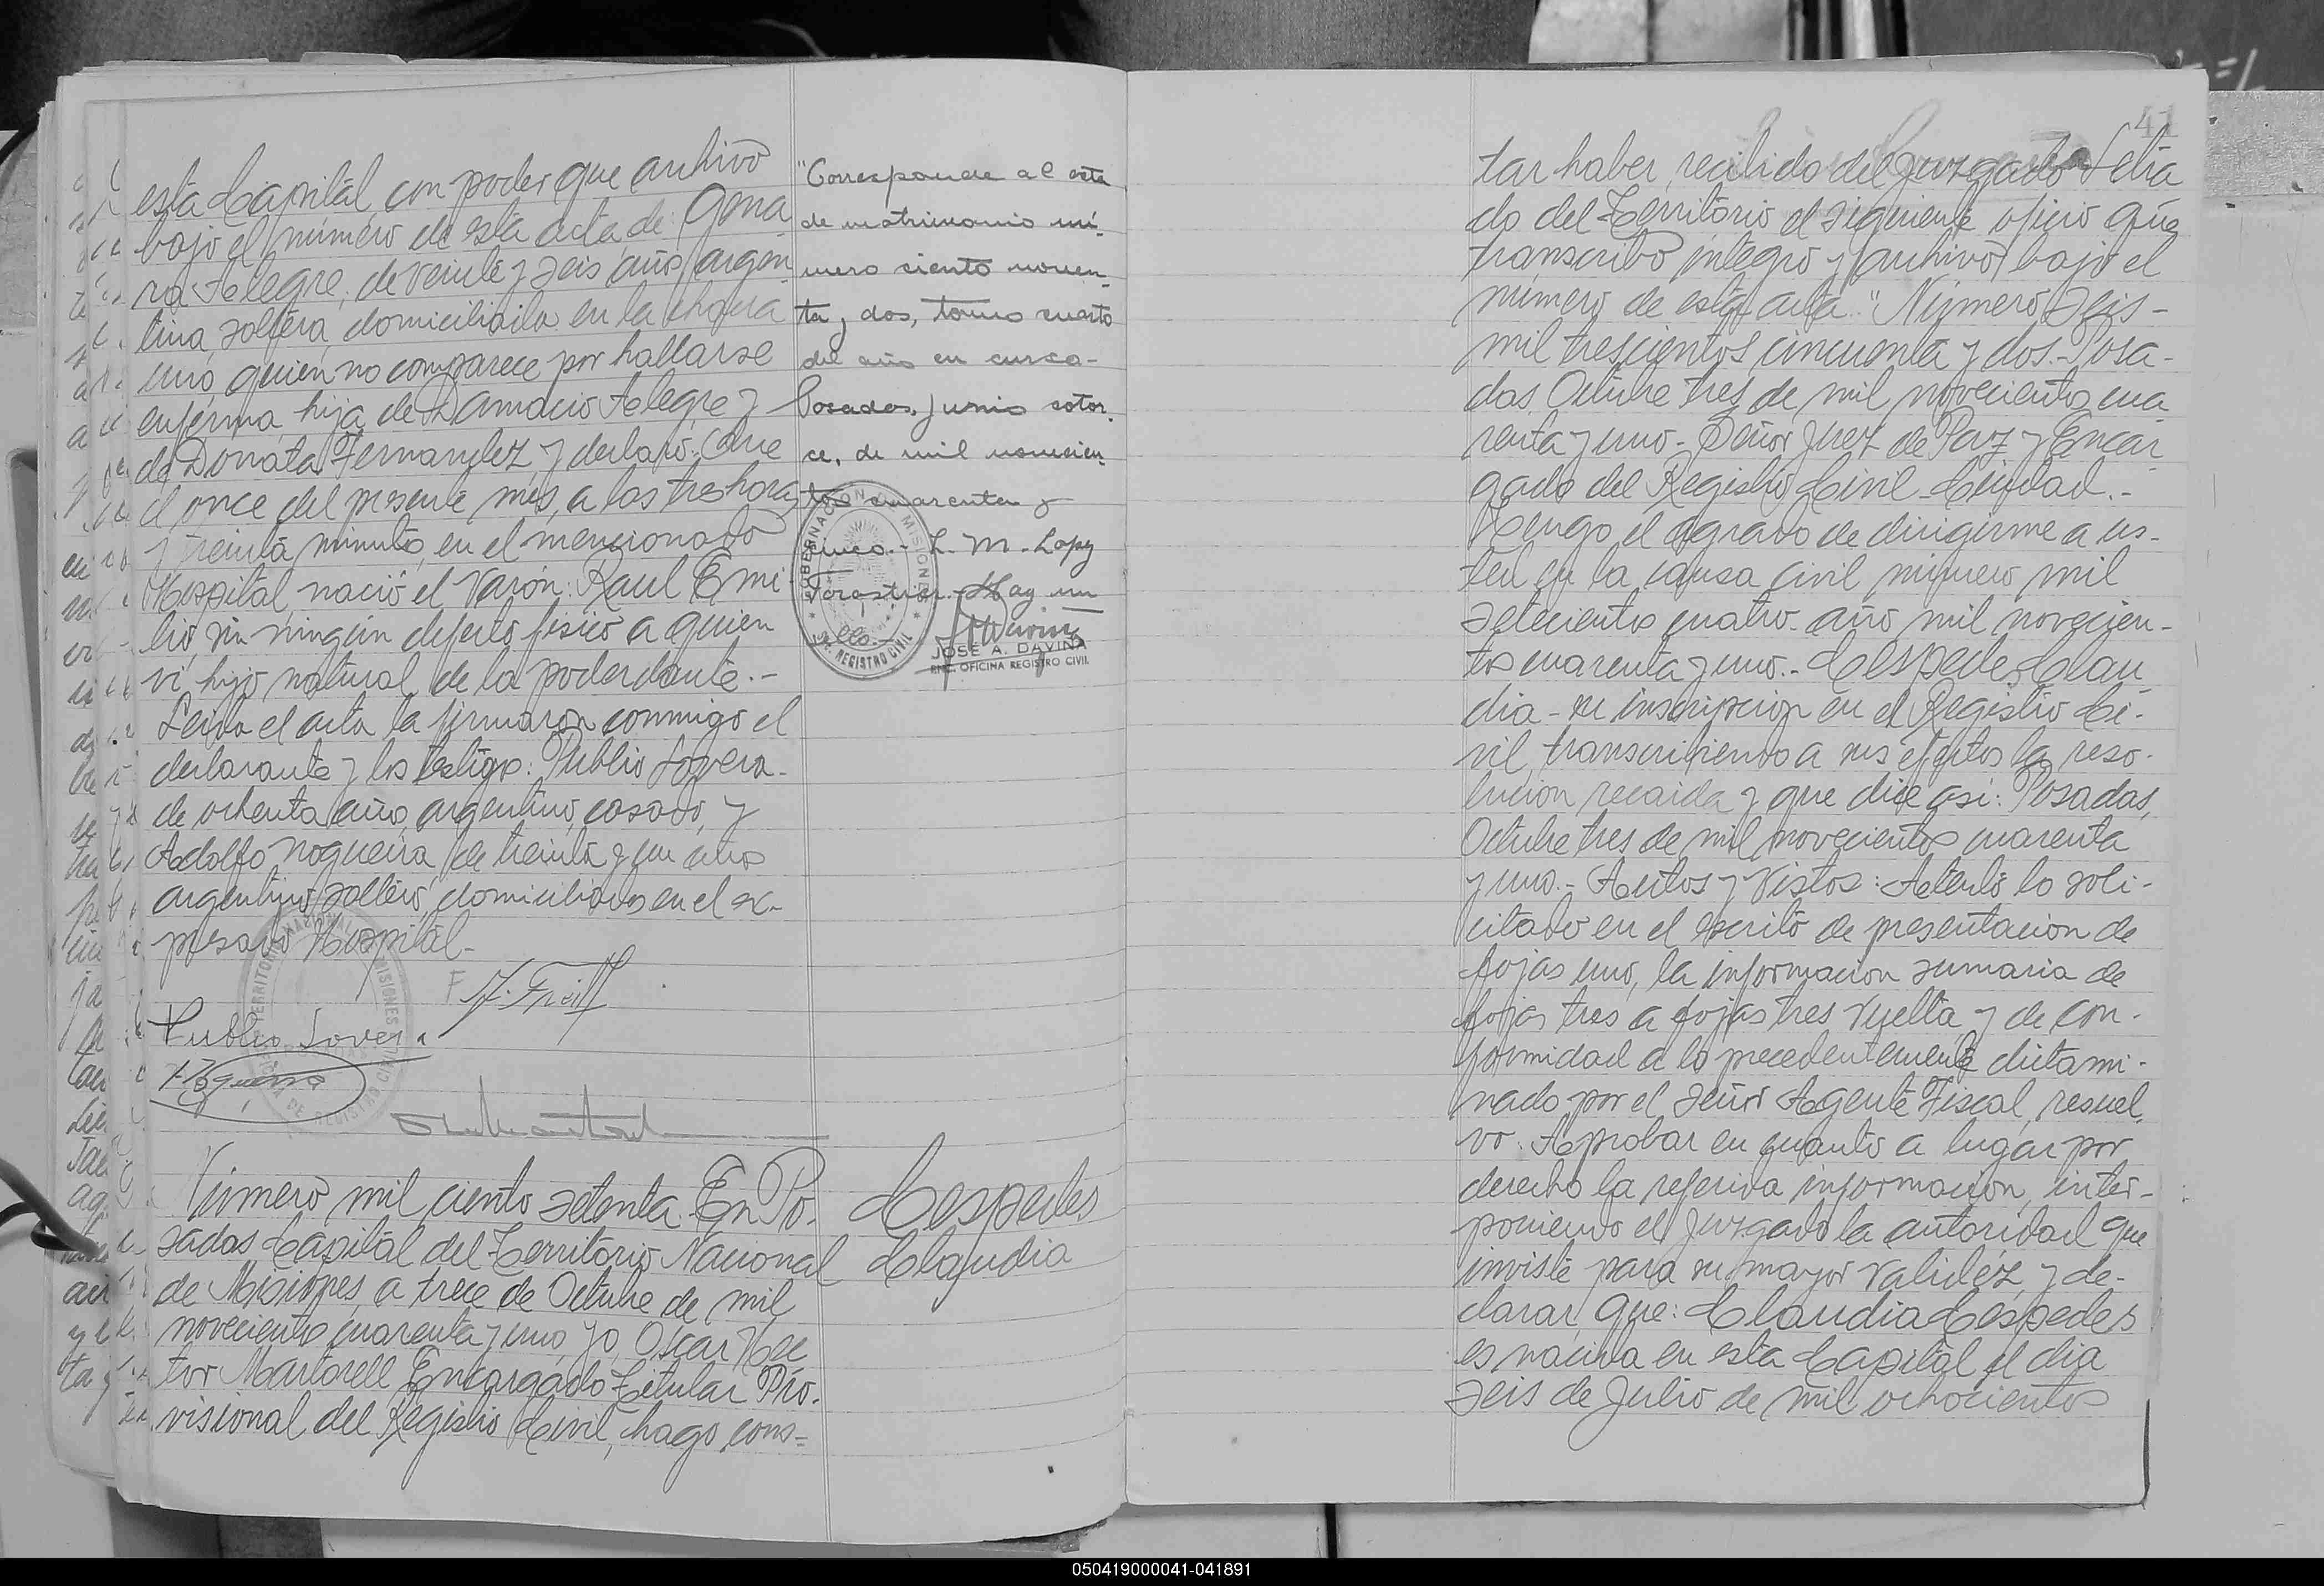 esta Capital, con poder que archivo
bajo el número de esta acta de: Gena
ra Alegre, de veinte y seis años, argen-
tina, soltera, domiciliada en la chacra
uno, quien no comparece por hallarse
enferma, hija de Damacio Alegre y
de Donata Fernandez y declaró: Que
el once del presente mes, a las tres horas
y treinta minutos, en el mencionado
Hospital nació el varón: Raul Emi-
lio, sin ningún defecto físico a quien
ví, hijo natural de la poderdante.-
Leída el acta la firmaron conmigo el
declarante y los testigos: Publio Lovera-
de ochenta años, argentino, casado, y
Adolfo Nogueira de treinta y un años
argentino, soltero, domiciliados en el ex-
presado Hospital.-
Publio Lovera
"Corresponde al acta
de matrimonio nú-
mero ciento noven-
ta y dos, tomo cuarto
del año en curso-
Posadas, Junio cator-
ce, de mil novecien-
tos cuarenta y
cinco.- L. M. Lopez
Forastier- Hay un
sello.-
GOBERNACION MISIONES
REGISTRO CIVIL
JOSE A. DAVIÑA
ENC. OFICINA REGISTRO CIVIL
TERRITORIO NACIONAL DE MISIONES
OFICINA DE REGISTRO CIVIL
Número mil ciento setenta. En Po-
sadas Capital del Territorio Nacional
de Misiones, a trece de Octubre de mil
novecientos cuarenta y uno, yo, Oscar Hec
tor Martorell Encargado Titular Pro-
visional del Registro Civil, hago cons=
Cespedes
Claudia
41
tar haber recibido del Juzgado Letra
do del Territorio el siguiente oficio que
transcribo íntegro y archivo bajo el
número de esta acta: "Número Seis-
mil trescientos cincuenta y dos.- Posa-
das, Octubre tres de mil novecientos cua
renta y uno.- Señor Juez de Paz y Encar
gado del Registro Civil-Ciudad.-
Tengo el agrado de dirigirme a us-
ted en la causa civil número mil
setecientos cuatro- año mil novecien-
tos cuarenta y uno.- Cespedes Clau
dia - su inscripción en el Registro Ci-
vil, transcribiendo a sus efectos la reso-
lución recaída y que dice así: Posadas,
Octubre tres de mil novecientos cuarenta
y uno.- Autos y Vistos: Atento lo soli-
citado en el escrito de presentación de
fojas uno, la información sumaria de
fojas tres a fojas tres vuelta y de con-
formidad a lo precedentemente dictami-
nado por el señor Agente Fiscal, resuel-
vo: Aprobar en cuanto a lugar por
derecho la referida información, inter-
poniendo el Juzgado la autoridad que
inviste para su mayor validéz, y de-
clarar, que: Claudia Cespedes
es nacida en esta Capital el dia
seis de Julio de mil ochocientos
050419000041-041891